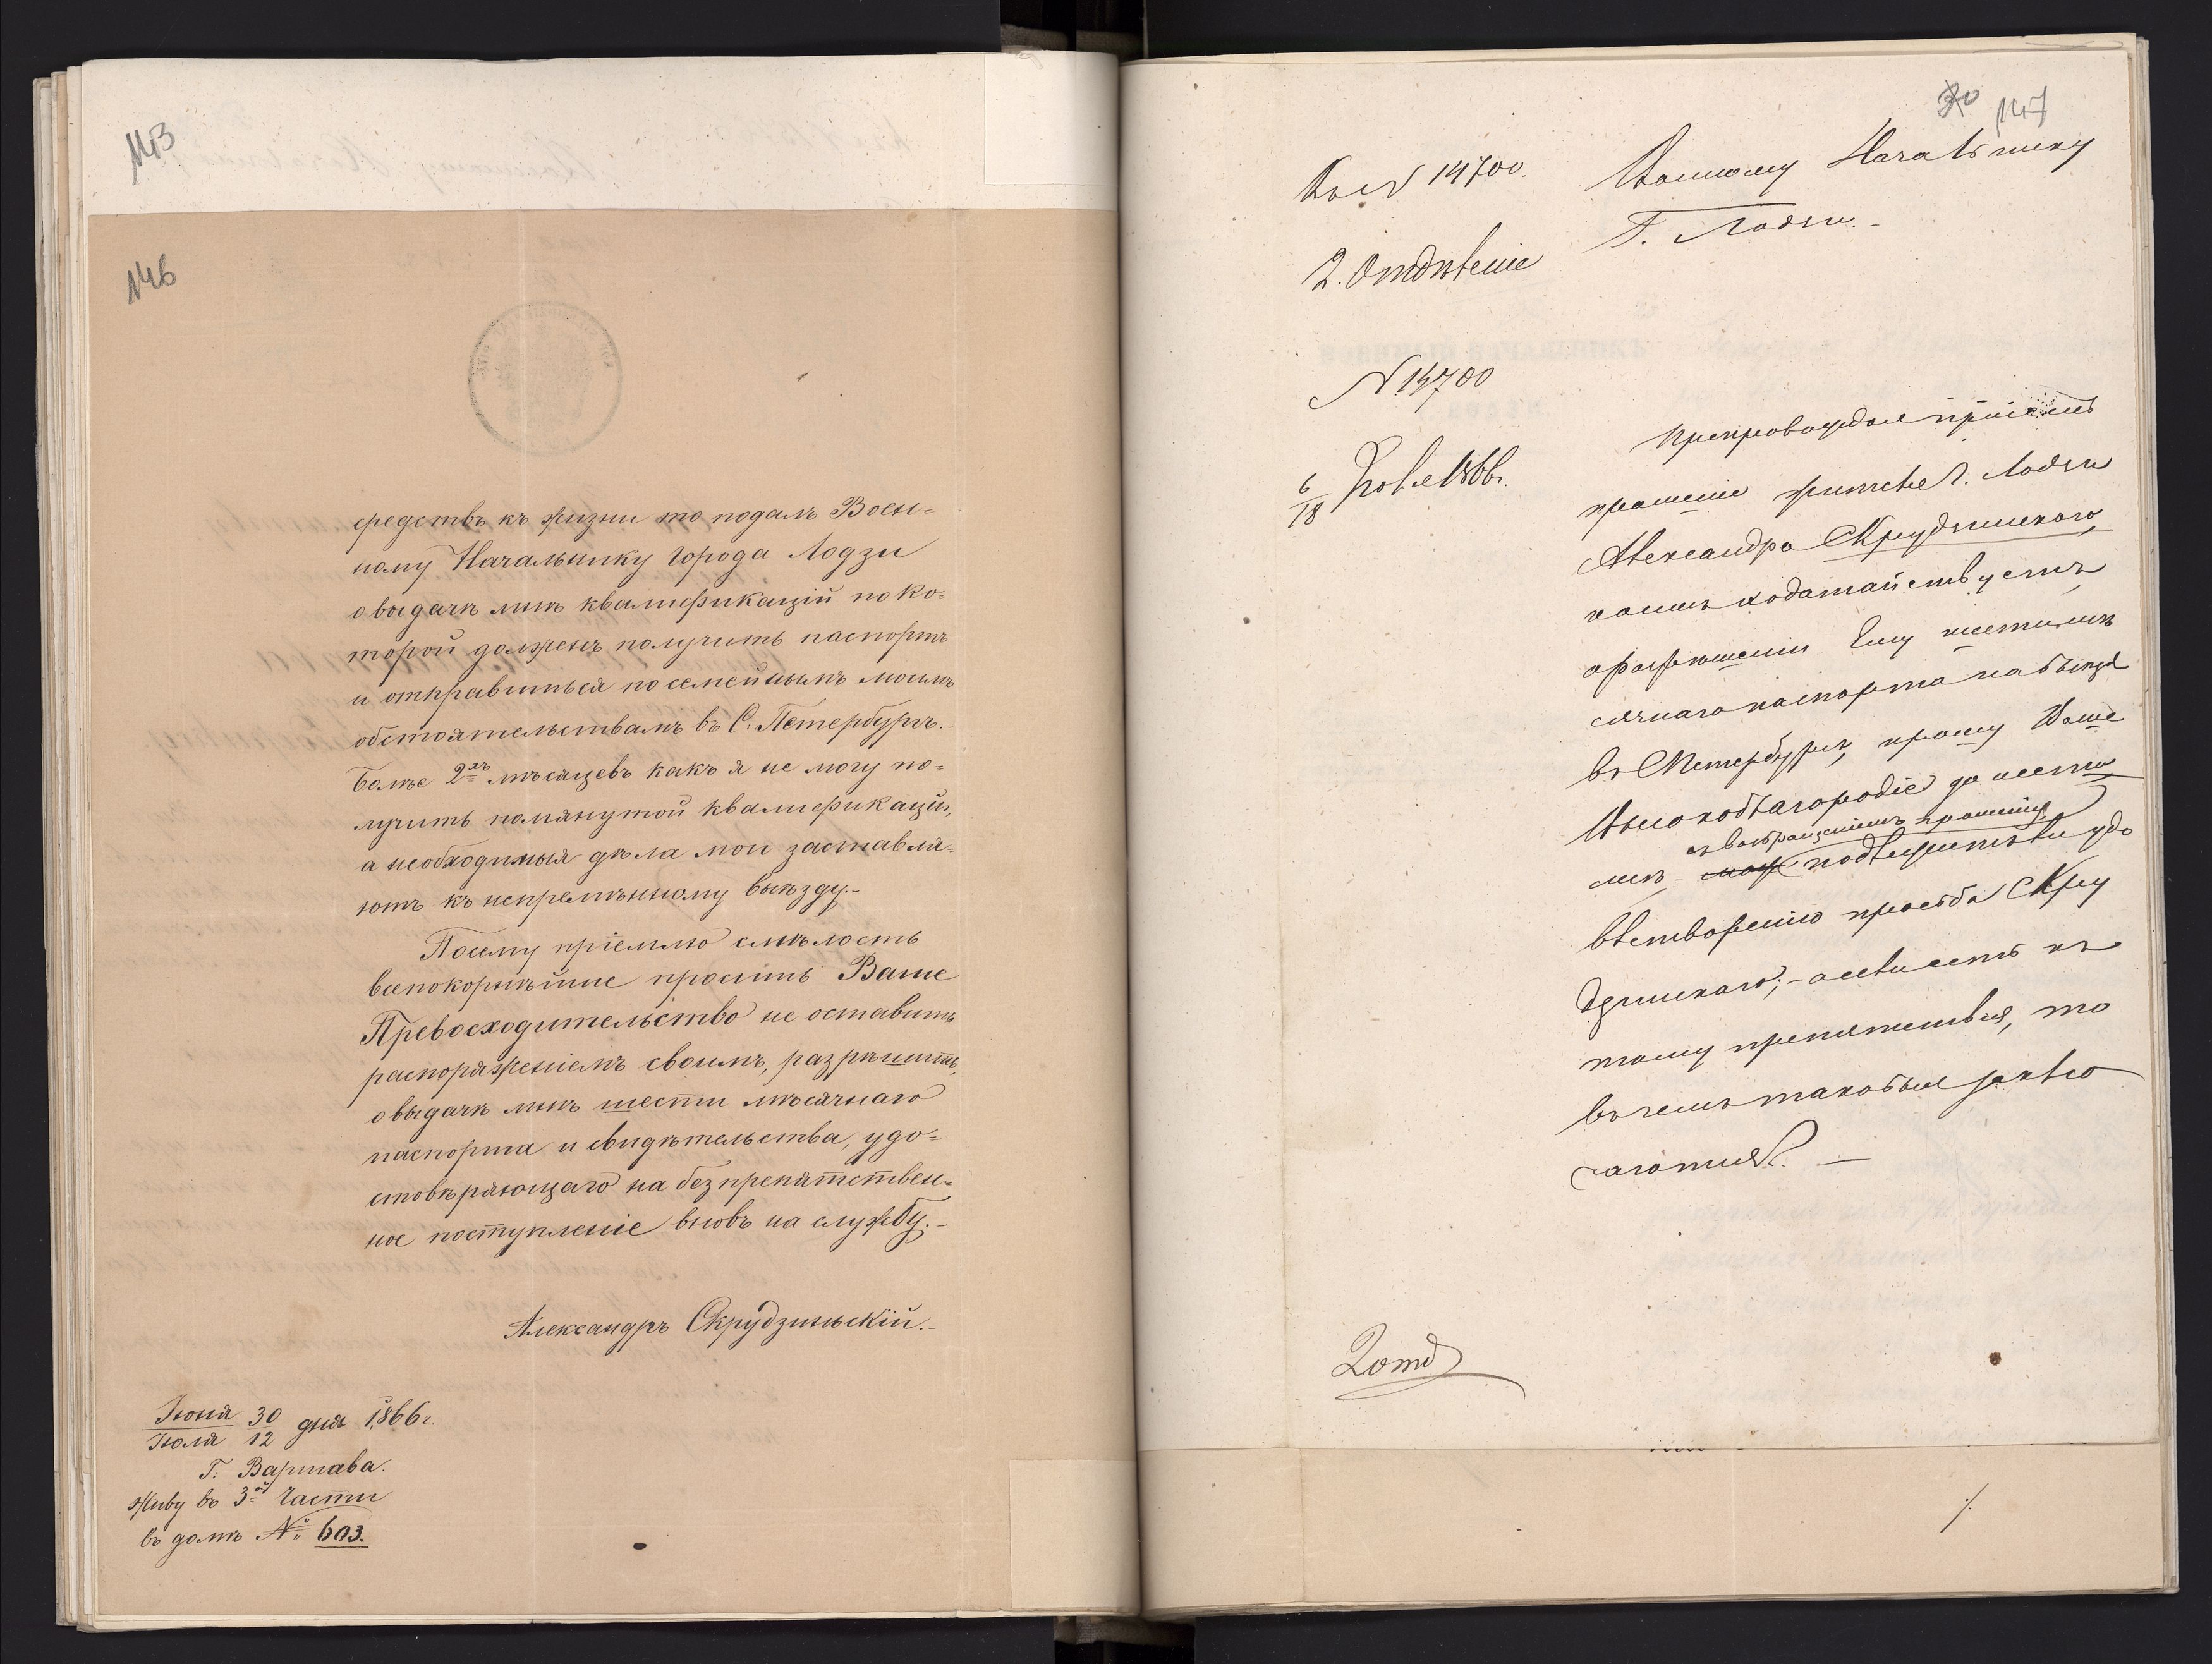 143
146
средствъ къ жизни то подалъ Воен=
ному Начальнику Города Лодзи
о выдачѣ мнѣ квалификацiй по ко=
торой долженъ получить паспортъ
и отправиться по семейнымъ моимъ
обстоятельствамъ въ С. Петербургъ.
Болѣе 2хъ мѣсяцевъ какъ я не могу по=
лучить помянутой квалификацiи,
а необходимыя дѣла мои заставля=
ютъ къ непремѣнному выѣзду.-
Посему прiемлю смѣлость
всепокорнѣйше просить Ваше
Превосходительство не оставить
распоряженiемъ своимъ, разрѣшить,
о выдачѣ мнѣ шести мѣсячнаго
паспорта и свидѣтельства, удо=
стовѣряющаго на безпрепятствен=
ное поступленiе вновь на службу.-
Александръ Скрудзиньскiй.-
Iюня 30 дня 1866 г.
Iюля 12
Г. Варшава.
Живу въ 3й Части
въ домѣ № 603.
147
Къ № 14700.
Военному Начальнику
Г. Лодзи.-
2. Отдѣленiе
№ 14700
6/18 Iюля 1866 г.
Препровождая при семъ
прошенiе жителя г. Лодзи
Александра Скрудзинскаго,
коимъ ходатайствуетъ
о разрѣшенiи Ему шестимѣ
сячнаго паспорта на выѣздъ
въ С Петербургъ, прошу Ваше
Высокоблагородiе донести
съ возвращенiемъ прошенiя,
мнѣ, подлежитъ ли удо
влетворенiю просьба Скру
дзинскаго;- а если есть къ
тому препятствiя, то
въ чемъ таковыя заклю
чаются? —
2 отд